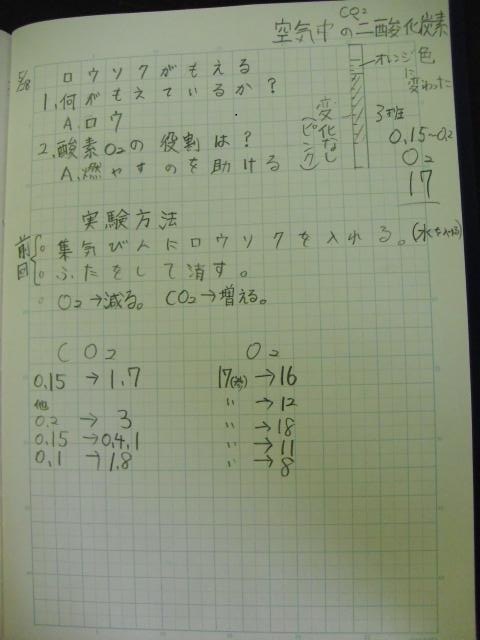 空気中の二酸化炭素
CO2
5/28
ロウソクがもえる
1.何がもえているか?
A.ロウ
2.酸素O2の役割は?
A.燃やすのを助ける
オレンジ色
に
変わった
変化なし
(ピンク)
3班
0.15~0.2
O2
17
実験方法
前回
集気び人にロウソクを入れる。(水を入れる)
ふたをして消す。
O2→減る。 CO2→増える。
CO2 O2
0.15→1.7 17(%)→16
他
0.2→3 〃→12
0.15→0.4.1 〃→18
0.1→1.8 〃→11
〃→8